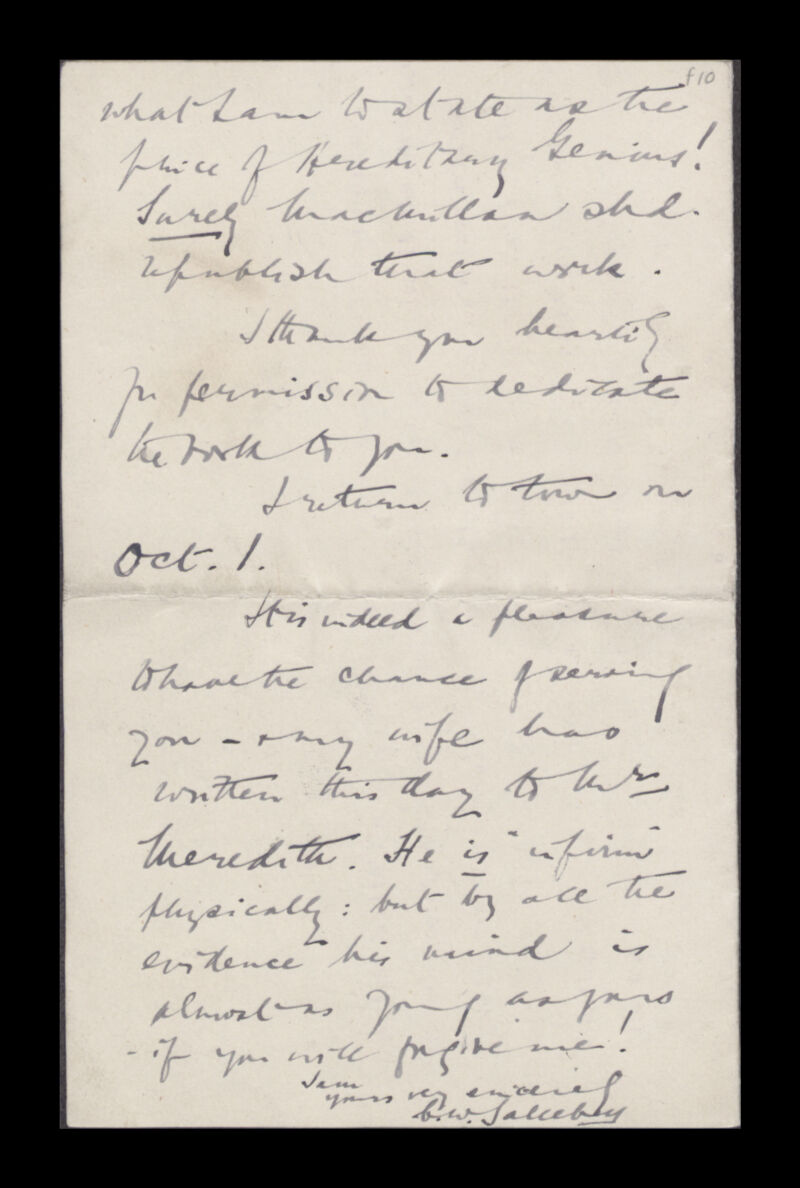 f10
what I am to state as the
price of Hereditary Genius!
Surely Macmillan shd.
republish that work.
I thank you heartily
for permission to dedicate
the book to you.
I return to town on
Oct. 1.
It is indeed a pleasure
to have the chance of serving
you - & my wife has
written this day to Mr
Meredith. He is "infirm"
physically: but by all the
evidence his mind is
almost as young as yours
- if you will forgive me!
I am
yours very sincerely
C.W. Saleeby